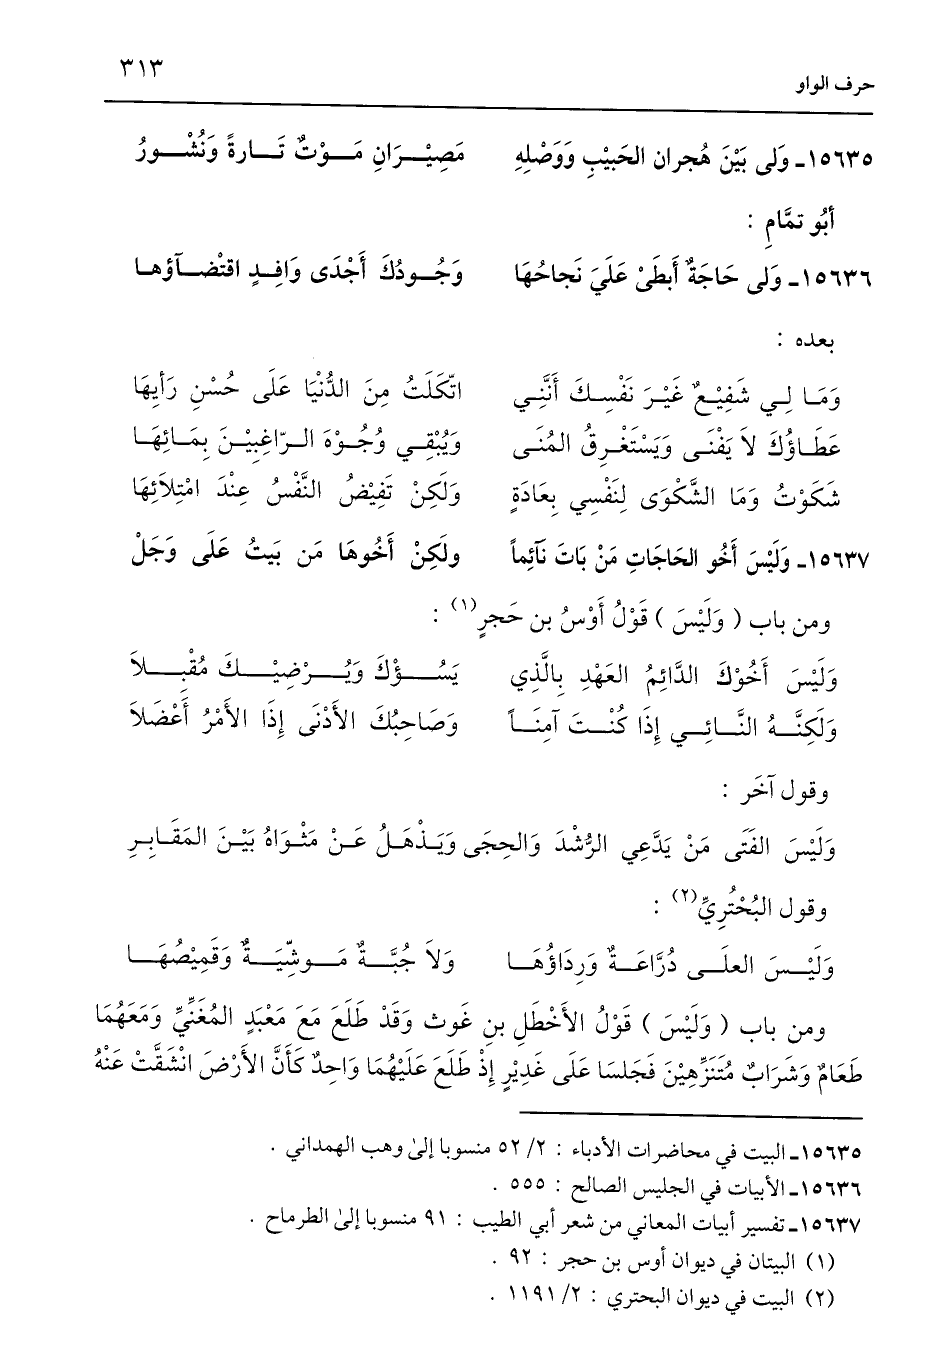 حرف الواو ٣١٣
١٥٦٣٥ـ وَلى بَيْنَ هُجران الحَبيْبِ وَوَصْلِهِ مَصِيْرَانِ مَوْتٌ تَارةً وَنُشْورُ
أبُو تمَّامٍ :
١٥٦٣٦ـ وَلى حَاجَةٌ أَبطَىْ عَلَيَ نَجاحُهَا وَجُودُكَ أَجْدَى وَافِدٍ اقتْضآؤها
بعده :
وَمَا لِي شَفِيْعٌ غَيْرَ نَفْسِكَ أَنَّنِي اتّكَلَتُ مِنَ الدُّنْيَا عَلَى حُسْنِ رَأيِهَا
عَطَاؤُكَ لاَ يَفْنَى وَيَسْتَغْرِقُ المُنَى وَيُبْقِي وُجُوْهَ الرّاغِبيْنَ بِمَائِهَا
شَكَوْتُ وَمَا الشَّكْوَى لِنَفْسِي بِعَادَةٍ وَلَكِنْ تَفِيْضُ النَّفْسُ عِنْدَ امْتِلاَئِهَا
١٥٦٣٧ـ وَلَيْسَ أَخُو الحَاجَاتِ مَنْ بَاتَ نَآئِماً ولَكِنْ أَخُوهَا مَن بَيتُ عَلَى وَجَلْ
ومن باب ( وَلَيْسَ ) قَوْلُ أَوْسُ بن حَجرٍ(١) :
وَلَيْسَ أَخُوْكَ الدَّائِمُ العَهْدِ بِالَّذِي يَسُؤْكَ وَيُرْضِيْكَ مُقْبِلاَ
وَلَكِنَّهُ النَّائِي إِذَا كُنْتَ آمِنَاً وَصَاحِبُكَ الأَدْنَى إِذَا الأَمْرُ أَعْضَلاَ
وقول آخَر :
وَلَيْسَ الفَتَى مَنْ يَدَّعِي الرُّشْدَ وَالحِجَى وَيَذْهَلُ عَنْ مَثْوَاهُ بَيْنَ المَقَابِرِ
وقول البُحْتُرِيِّ(٢) :
وَلَيْسَ العلَى دُرَّاعَةٌ وَرِدَاؤُهَا وَلاَ جُبَّةٌ مَوشّيَةٌ وَقَمِيْصُهَا
ومن باب ( وَلَيْسَ ) قَوْلُ الأَخْطَلِ بنِ غَوث وَقَدْ طَلَعَ مَعَ مَعْبَدٍ المُغَنِّيِّ وَمَعَهُمَا
طَعَامٌ وَشَرَابٌ مُتَنَزِّهِيْنَ فَجَلسَا عَلَى غَدِيْرٍ إِذْ طَلَعَ عَلَيْهُمَا وَاحِدٌ كَأَنَّ الأَرْضَ انْشَقَّتْ عَنْهُ
١٥٦٣٥ـ البيت في محاضرات الأدباء : ٢/ ٥٢ منسوبا إلىٰ وهب الهمداني .
١٥٦٣٦ـ الأبيات في الجليس الصالح : ٥٥٥ .
١٥٦٣٧ـ تفسير أبيات المعاني من شعر أبي الطيب : ٩١ منسوبا إلىٰ الطرماح .
(١) البيتان في ديوان أوس بن حجر : ٩٢ .
(٢) البيت في ديوان البحتري : ٢/ ١١٩١ .